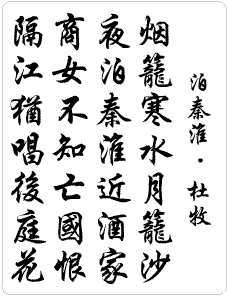 泊秦淮·杜牧
烟籠寒水月籠沙
夜泊秦淮近酒家
商女不知亡國恨
隔江猶唱後庭花